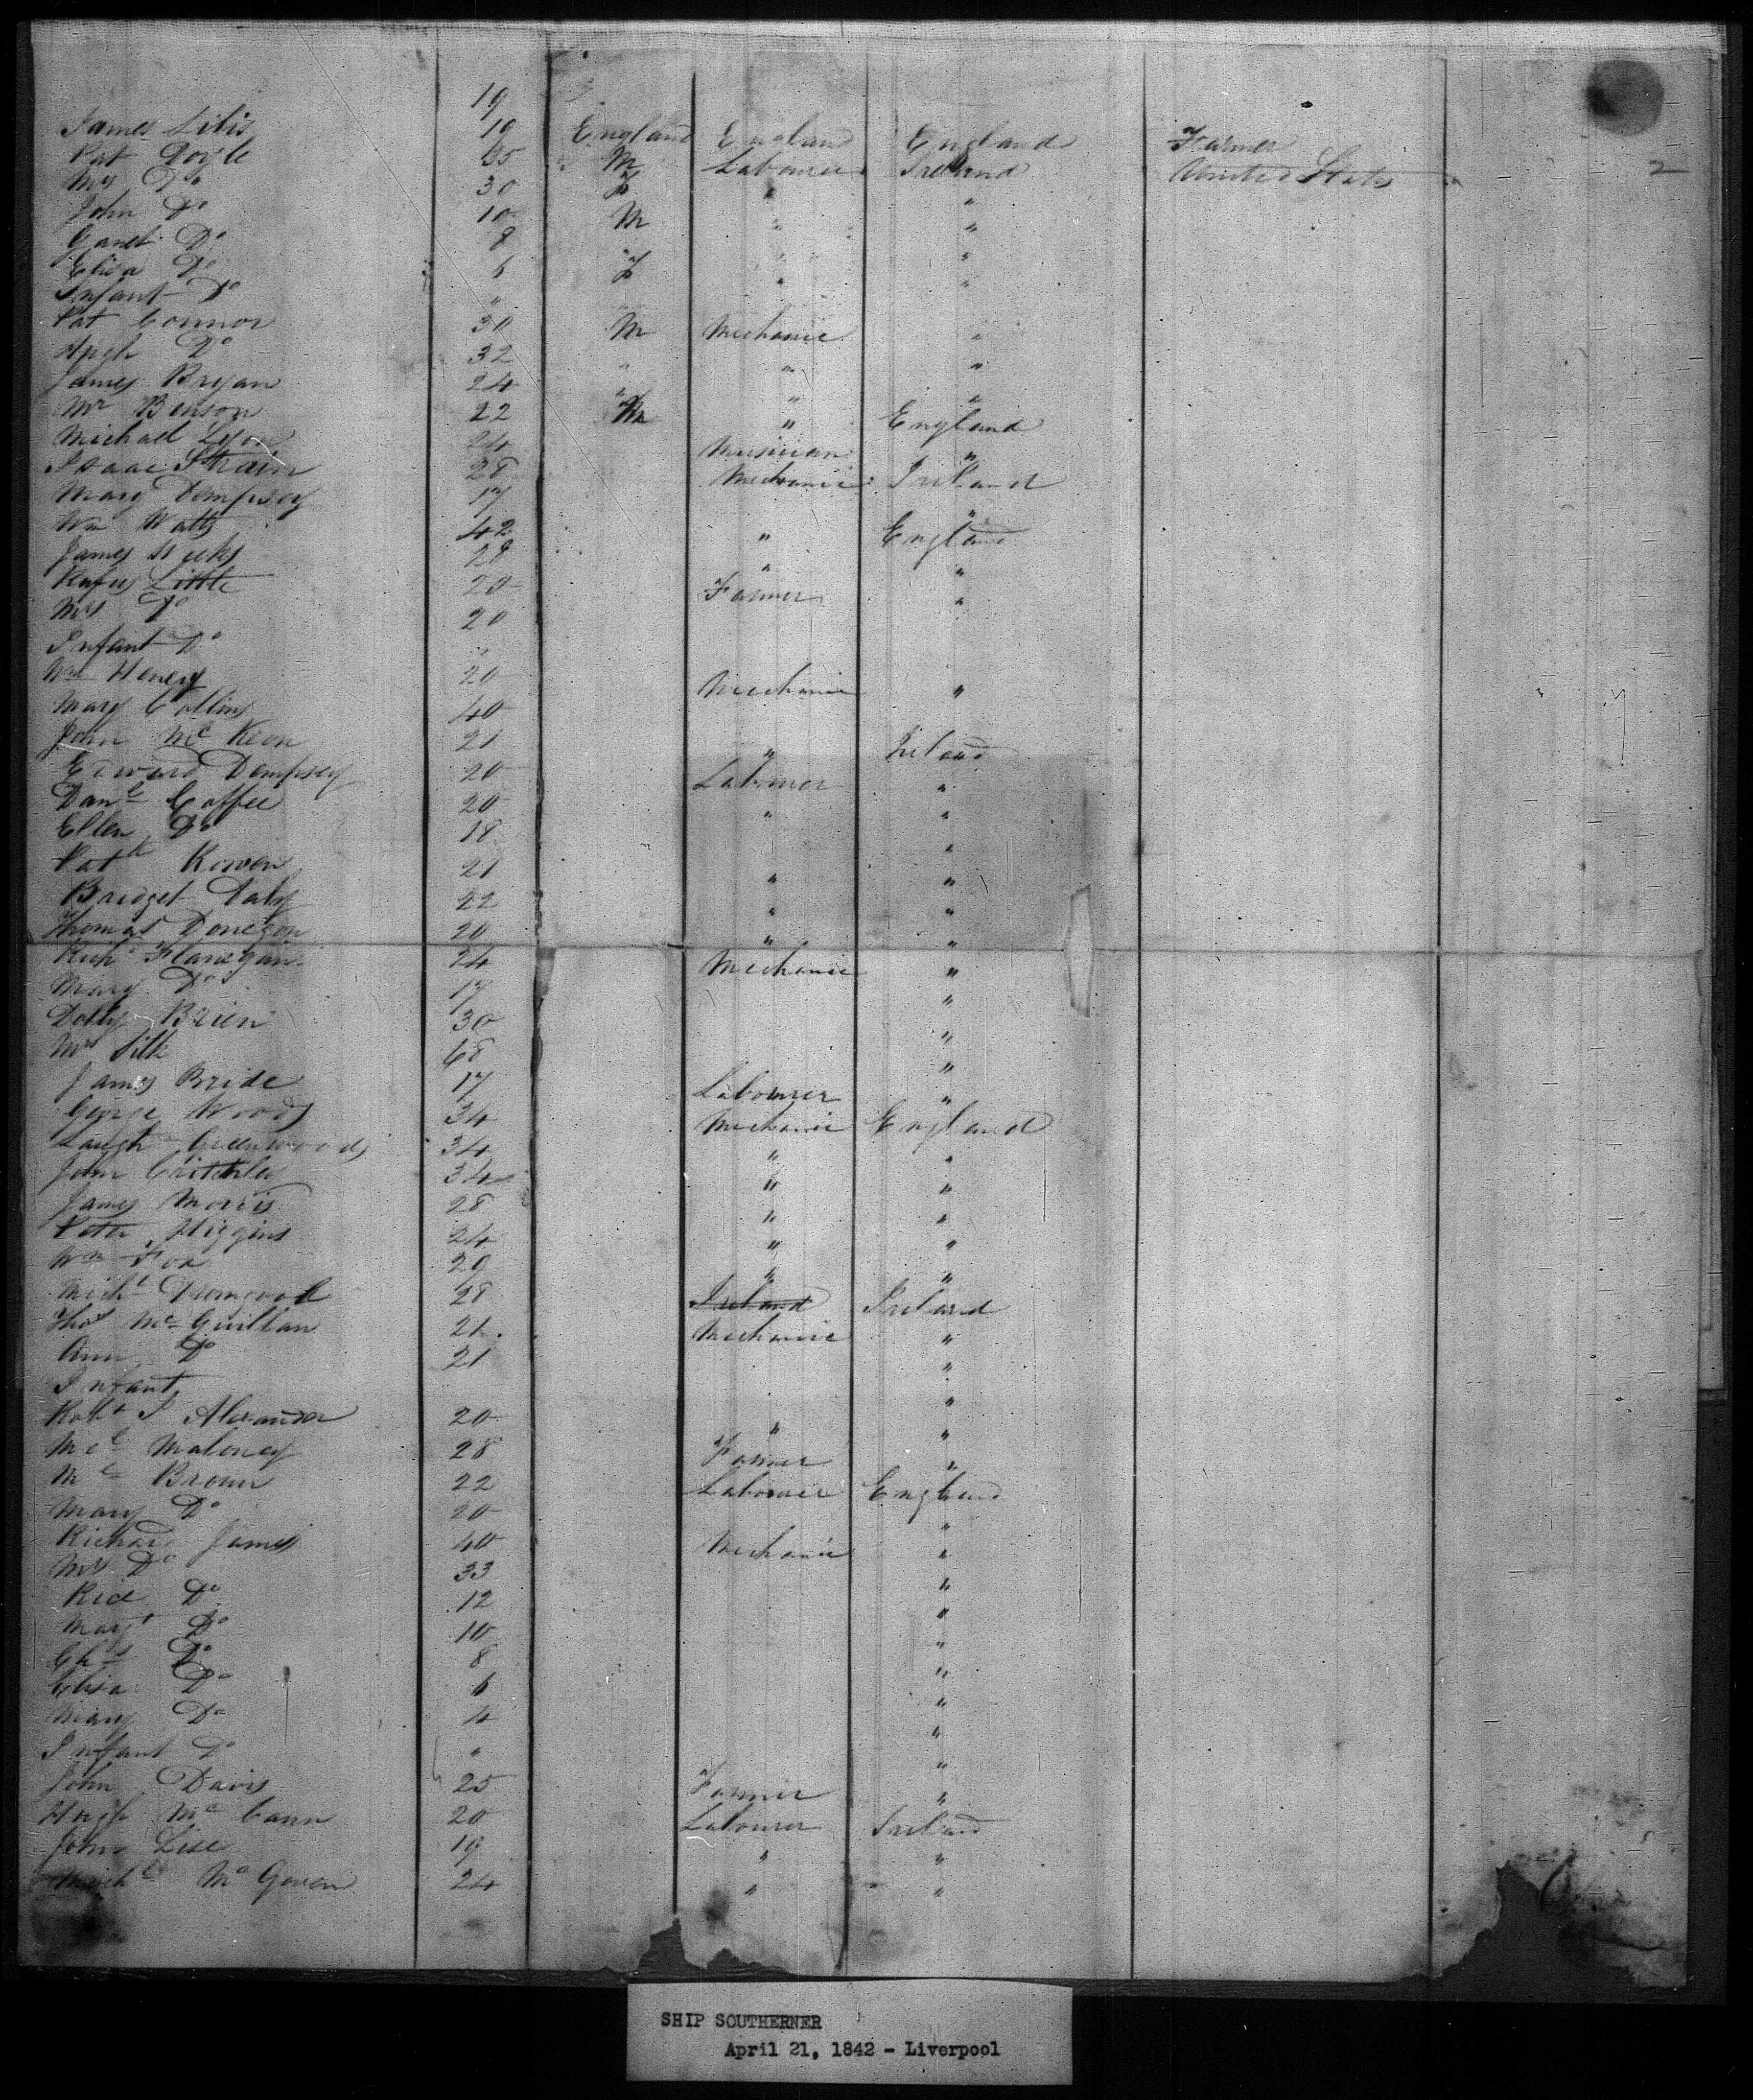 19
James Libis 19 England England England Farmer
Pat Doyle 35 M Labourer Ireland United States 2
Mrs Do 30 F " "
John Do 10 M " "
Janet Do 8 " " "
Eliza Do 6 F " "
Infant Do " "
Pat Connor 30 M Mechanic "
Hugh Do 32 " " "
James Bryan 24 " " "
Mr Benson 22 M " England
Michael Lyon 24 Musician "
Isaac Strain 28 Mechanic Ireland
Mary Dempsey 17 "
Wm Watts 42 " England
James Hicks 28 " "
Rufus Little 20 Farmer "
Mrs Do 20
Infant Do "
Wm Henery 20 Mechanic "
Mary Collins 40
John Mc Keon 21 " Ireland
Edward Dempsey 20 Labourer "
Danl Coffee 20 " "
Ellen Do 18 "
Patk Kowen 21 " "
Bridget Daly 22 " "
Thomas Donegon 20 " "
Richd Flanegan 24 Mechanic "
Mary Do 17 "
Dolly Brien 30 "
Mrs Silk 68 "
James Bride 17 Labourer "
George Woods 34 Mechanic England
Greenwood 34 " "
John Critchley 34 " "
James Morris 28 " "
Peter Higgins 24 " "
Wm Fox 29 " "
Michl Dromgool 28 Ireland Ireland
Thos Mc Quillan 21 Mechanic "
Ann Do 21 "
Infant "
Robt J Alexander 20 " "
Mcl Maloney 28 Farmer "
Brown 22 Labourer England
Mary Do 20 "
Richard James 40 Mechanic "
Mrs Do 33 "
Rice Do 12 "
Margt Do 10 "
Chs Do 8 "
Eliza Do 6 "
Mary Do 4 "
Infant Do " "
John Davis 25 Farmer "
Hugh Mc Cann 20 Labourer Ireland
John Lise 19 " "
Michl Mc Goven 24 " "
SHIP SOUTHERNER
April 21, 1842 - Liverpool